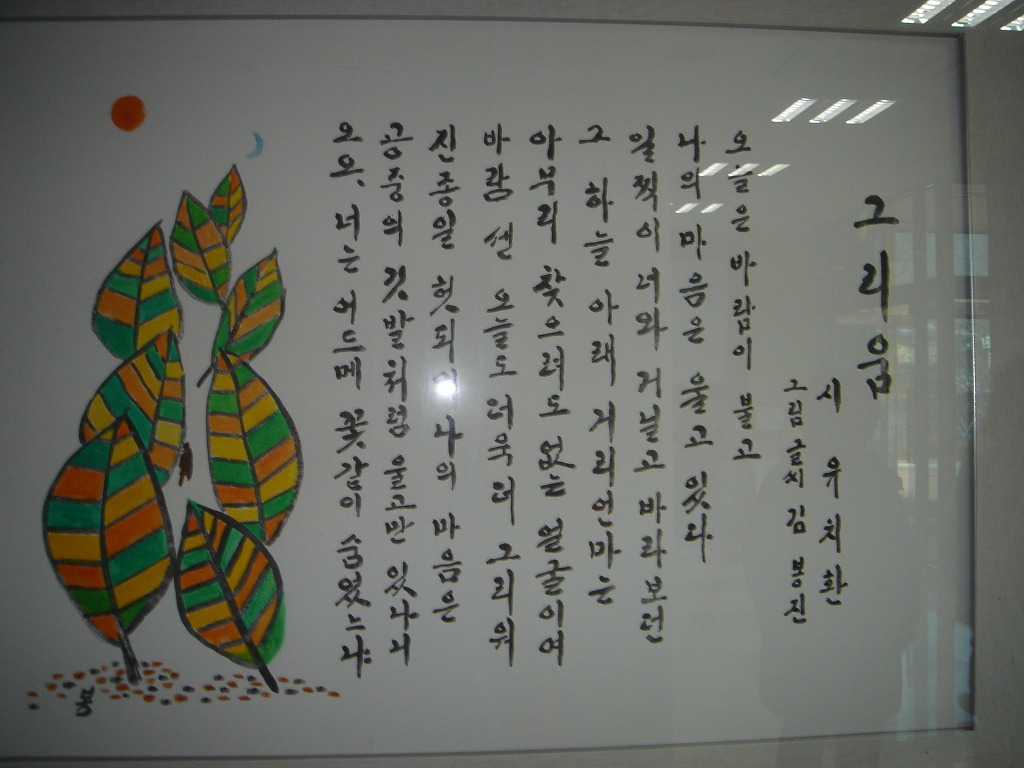 그리움
시 유치환
그림글씨 김봉진
오늘은 바람이 불고
나의 마음은 울고 있다
일찍이 너와 거닐고 바라보던
그 하늘 아래 거리언마는
아무리 찾으려도 없는 얼굴이여
바람 센 오늘도 더욱더 그리워
진종일 헛되이 나의 마음은
공중의 깃발처럼 울고만 있나니
오오, 너는 어드메 꽃같이 숨었느냐